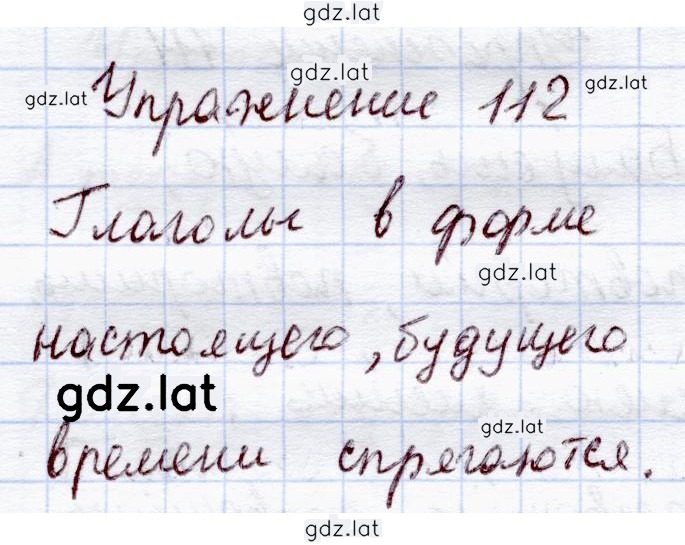 gdz.lat
gdz.lat
gdz.lat
gdz.lat
Упражнение 112
Глаголы в форме
gdz.lat
настоящего, будущего
gdz.lat
gdz.lat
времени спрягаются.
gdz.lat